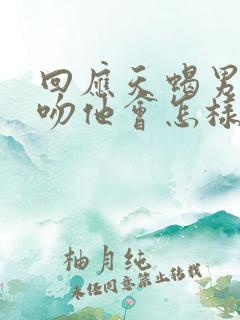 回应天蝎男
吻他会怎样
柚月纯
未经同意禁止转载